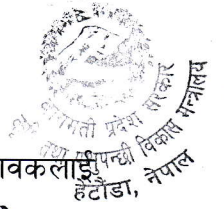 बागमती प्रदेश सरकार
तथा पशुपन्छी विकास मन्त्रालय
हेटौंडा, नेपाल
ावकलाई